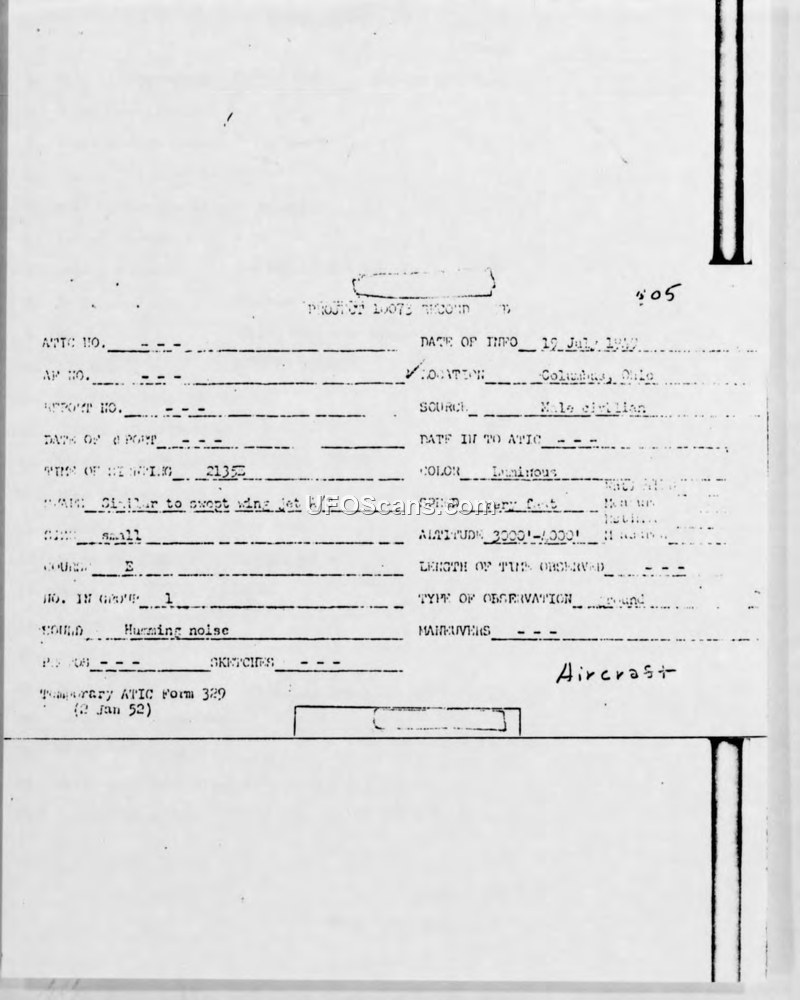 805
PROJECT 10073 RECORD
ATIC NO. - - - DATE OF INFO 19 July
AF NO. - - - ✓ LOCATION Columbus, Ohio
REPORT NO. - - - SOURCE Male civilian
DATE OF REPORT - - - DATE IN TO ATIC - - -
TIME OF SIGHTING 2135E COLOR Luminous
SHAPE Similar to swept wing jet SPEED very fast
UFOScans.com
SIZE small ALTITUDE 3000'-4000'
COURSE E LENGTH OF TIME OBSERVED - - -
NO. IN GROUP 1 TYPE OF OBSERVATION Ground
SOUND Humming noise MANEUVERS - - -
PHOTOS - - - SKETCHES - - -
Aircraft
Temporary ATIC Form 329
(2 Jan 52)